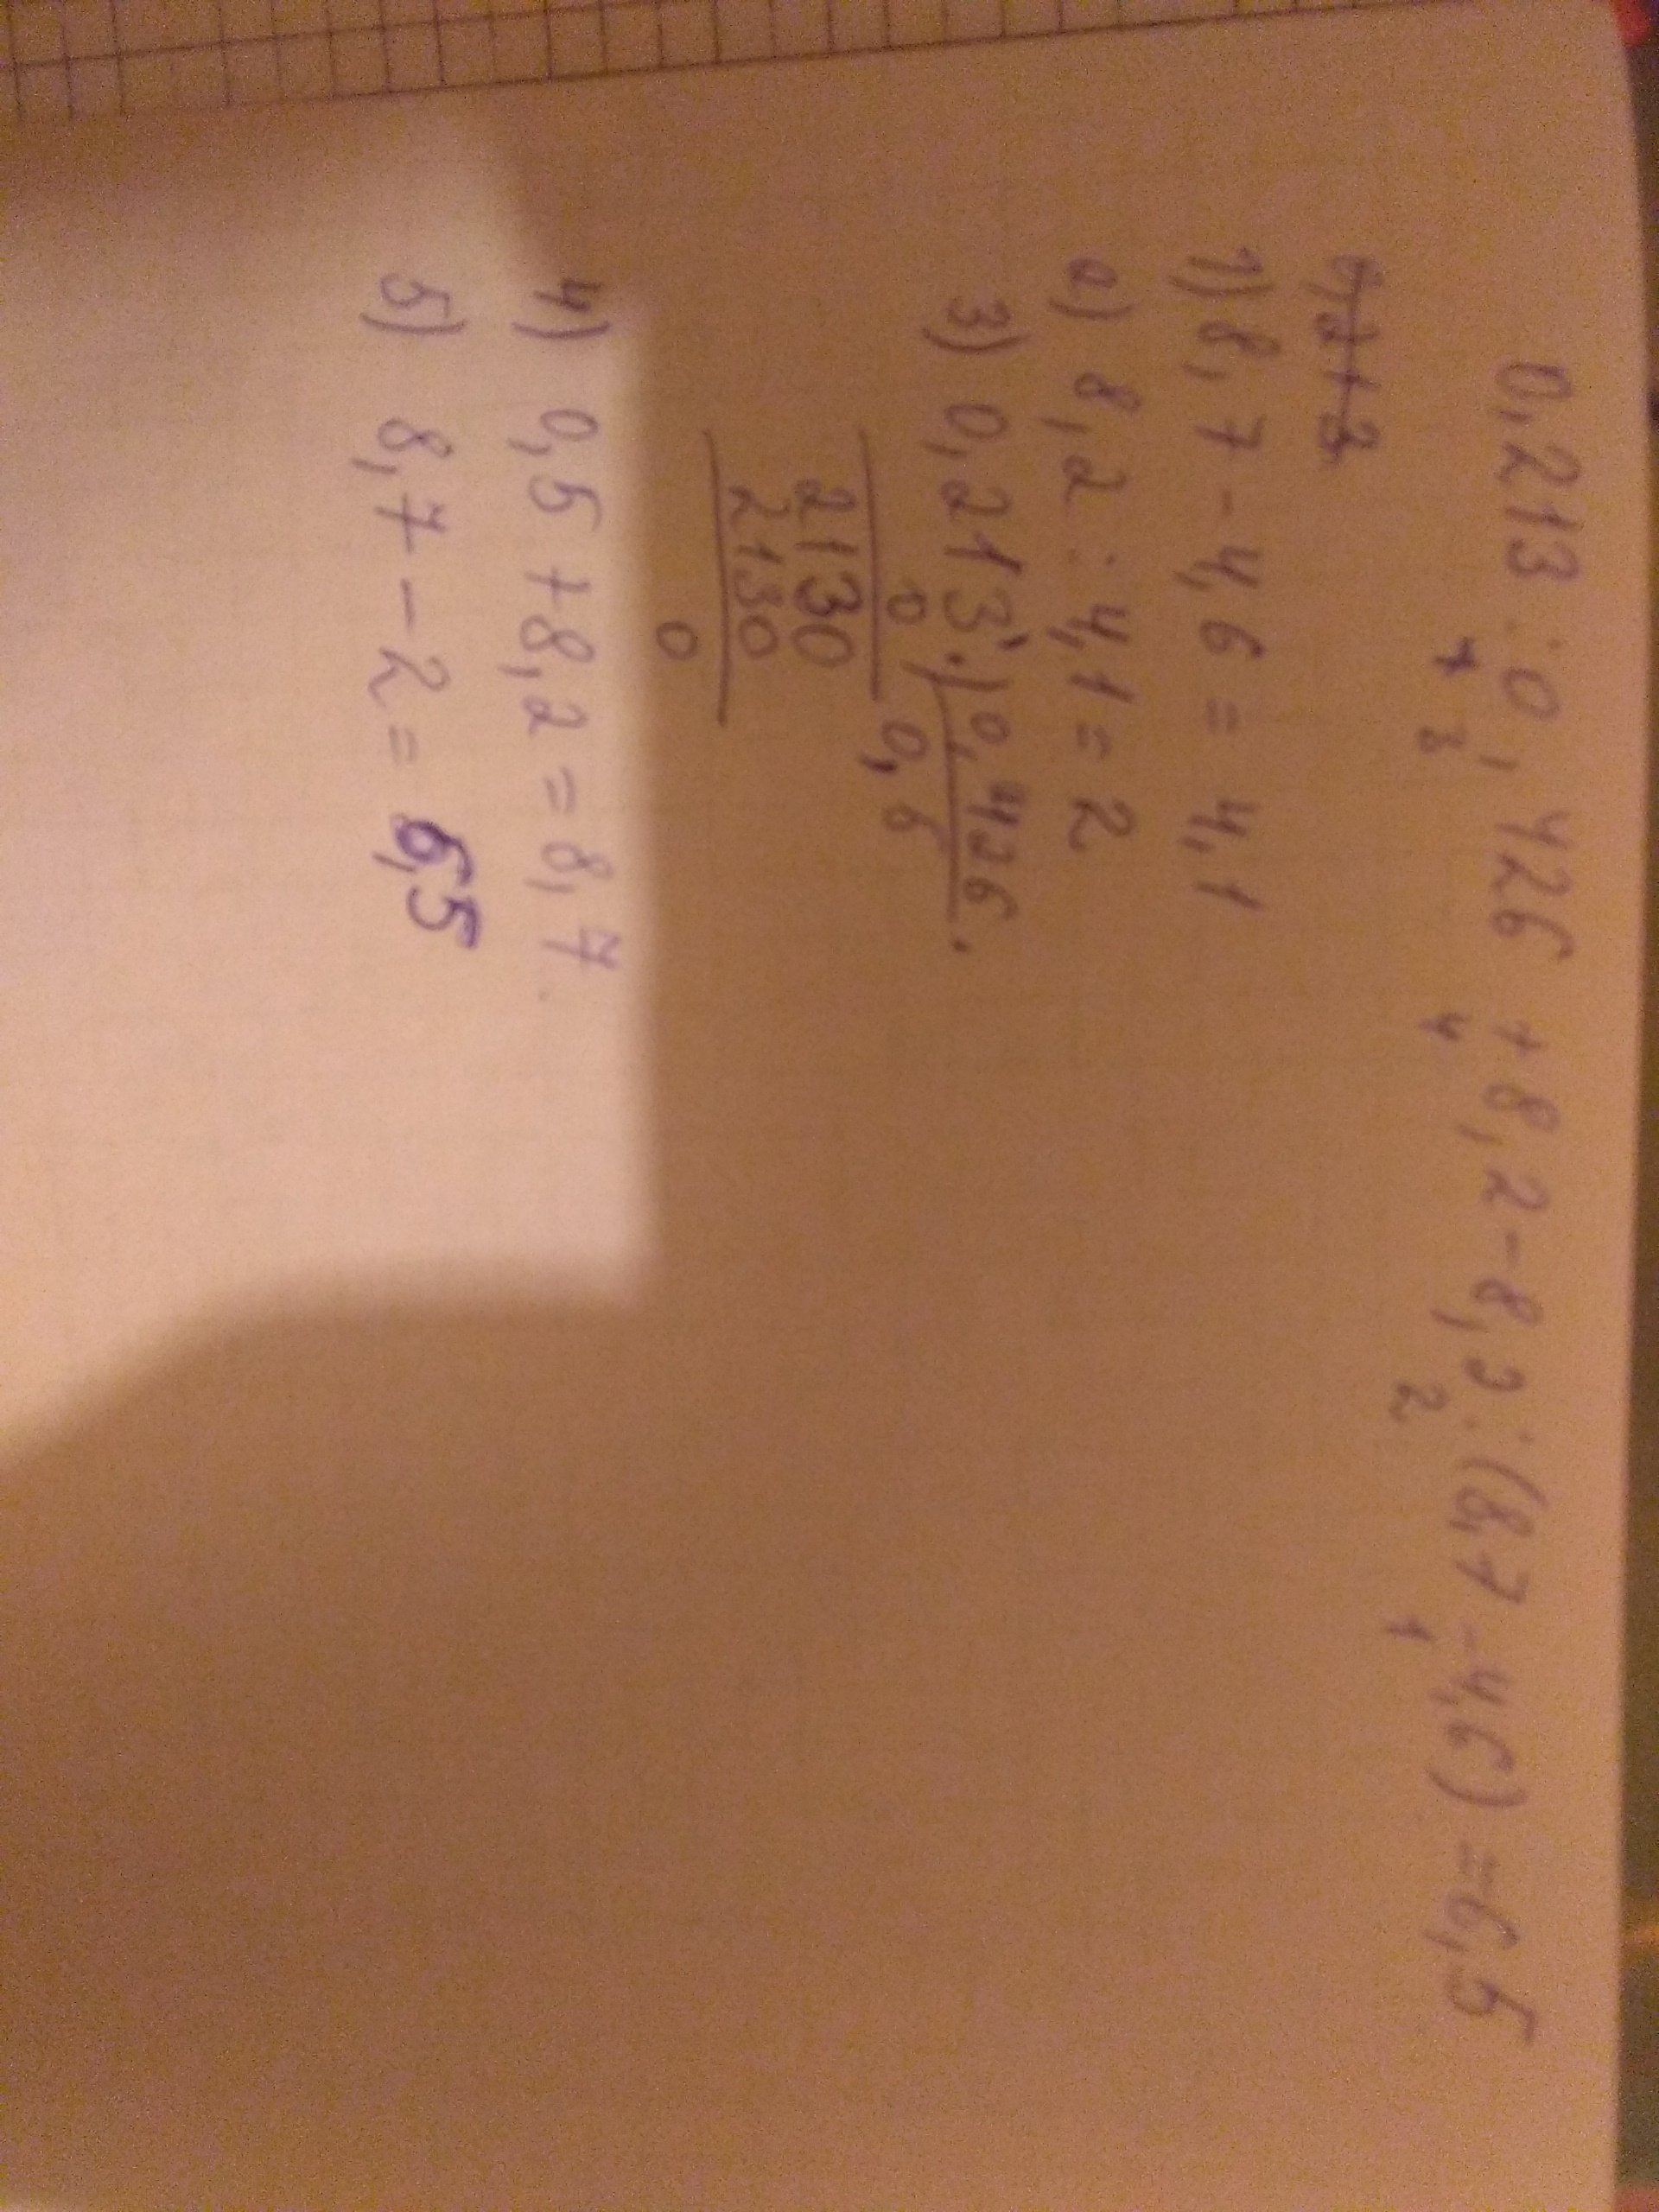 0,213 : 0,426 + 8,2 - 8,2 : (8,7 - 4,6) = 6,5
3 4 2 1
1) 8,7 - 4,6 = 4,1
2) 8,2 : 4,1 = 2
3) 0,213 0,426
0 0,5
2130
2130
0
4) 0,5 + 8,2 = 8,7
5) 8,7 - 2 = 6,5